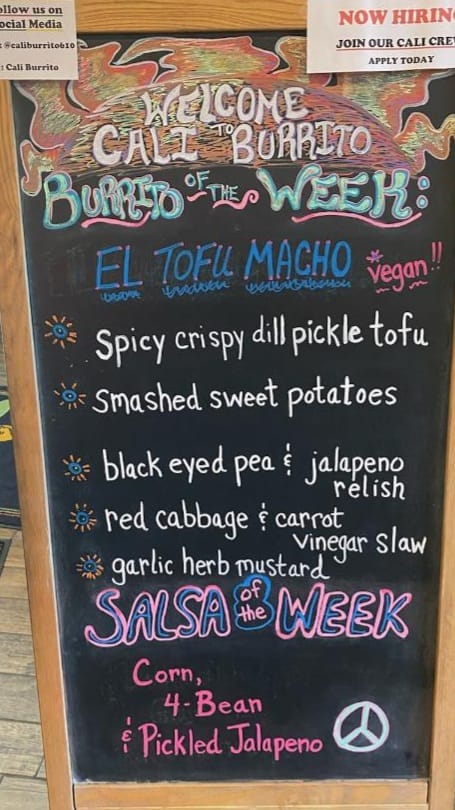 ollow us on
ocial Media
: @caliburrito610
: Cali Burrito
NOW HIRIN
JOIN OUR CALI CRE
APPLY TODAY
WELCOME
TO
CALI BURRITO
BURRITO OF THE WEEK:
EL TOFU MACHO *vegan!!
Spicy crispy dill pickle tofu
Smashed sweet potatoes
black eyed pea & jalapeno
relish
red cabbage & carrot
vinegar slaw
garlic herb mustard
SALSA of the WEEK
Corn,
4-Bean
& Pickled Jalapeno